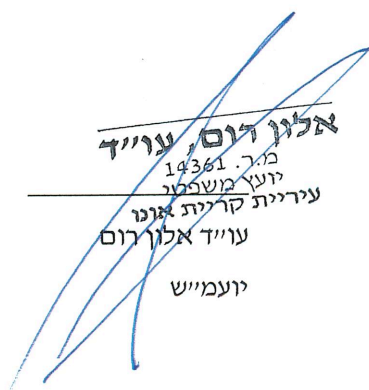 אלון רום, עו״ד
מ.ר. 14361
יועץ משפטי
עיריית קריית אונו
עו״ד אלון רום
יועמ״ש